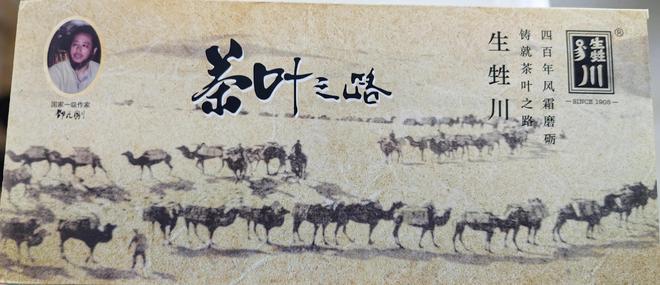 茶叶之路
国家一级作家
邓九刚
四百年风霜磨砺
铸就茶叶之路
生甡川
生甡川
®
SINCE 1905